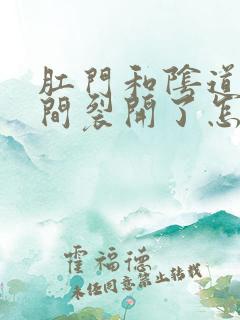 肛門和陰道
間裂開了怎
霍福德
未经同意禁止转载